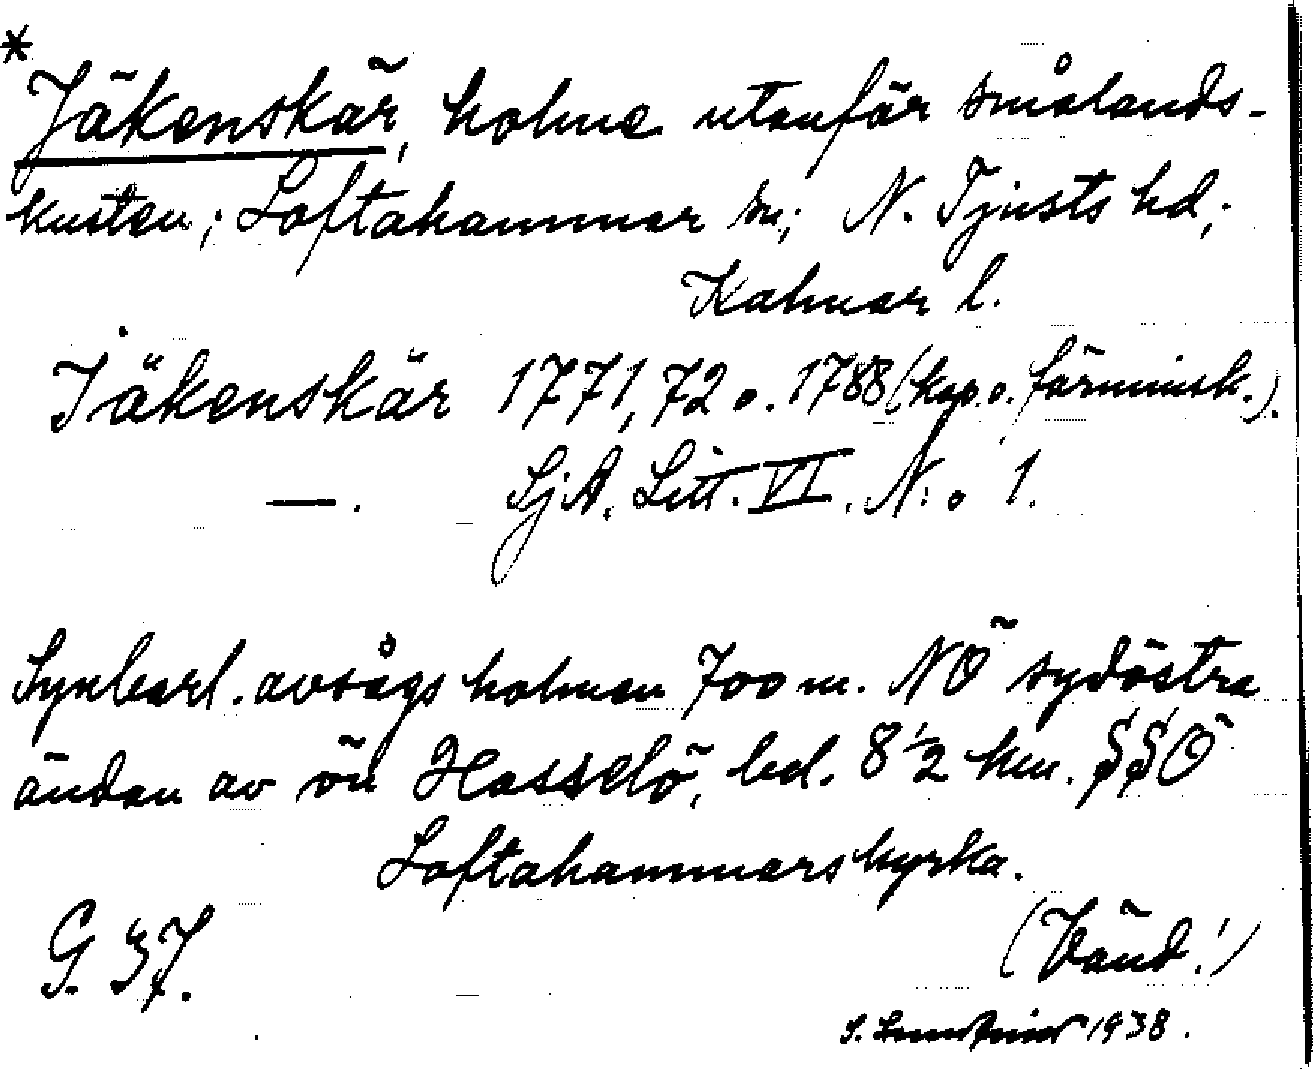 *
Jäkenskär, holme utanför smålands-
kusten; Loftahammar sn; N. Tjusts hd;
Kalmar l.
Jäkenskär 1771, 72 o. 1788 (kap. o. förminsk.).
—. SjA. Litt. VI. N:o 1.
Synbarl. avsågs holmen 700 m. NÖ sydöstra
ändan av ön Hasselö, bel. 8 ½ km. SSÖ
Loftahammars kyrka.
G 37.
(Vänd!)
S. 1938.